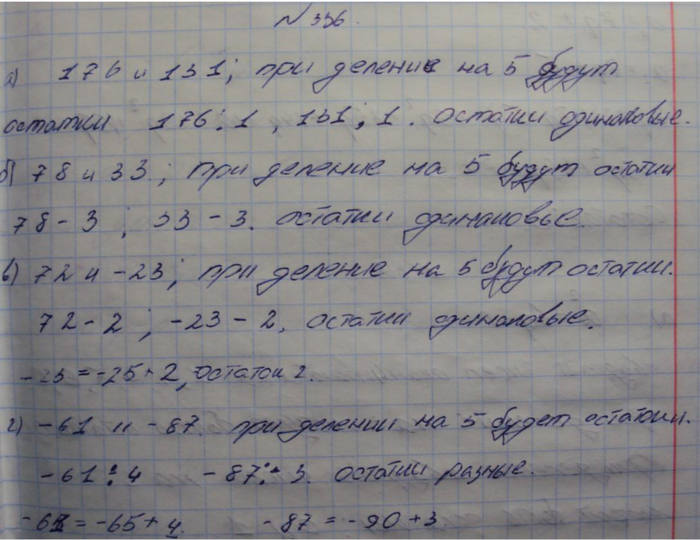 № 336.
а) 176 и 131; при делении на 5 будут
остатки 176:1, 131; 1. остатки одинаковые.
б) 78 и 33; при деление на 5 будут остатки
78-3; 33-3. остатки одинаковые.
в) 72 и -23; при деление на 5 будут остатки.
72-2; -23-2. остатки одинаковые.
-23 = -25+2, остаток 2.
г) -61 и -87. при делении на 5 будет остатки.
-61:4 -87:3. остатки разные.
-61 = -65+4. -87 = -90+3